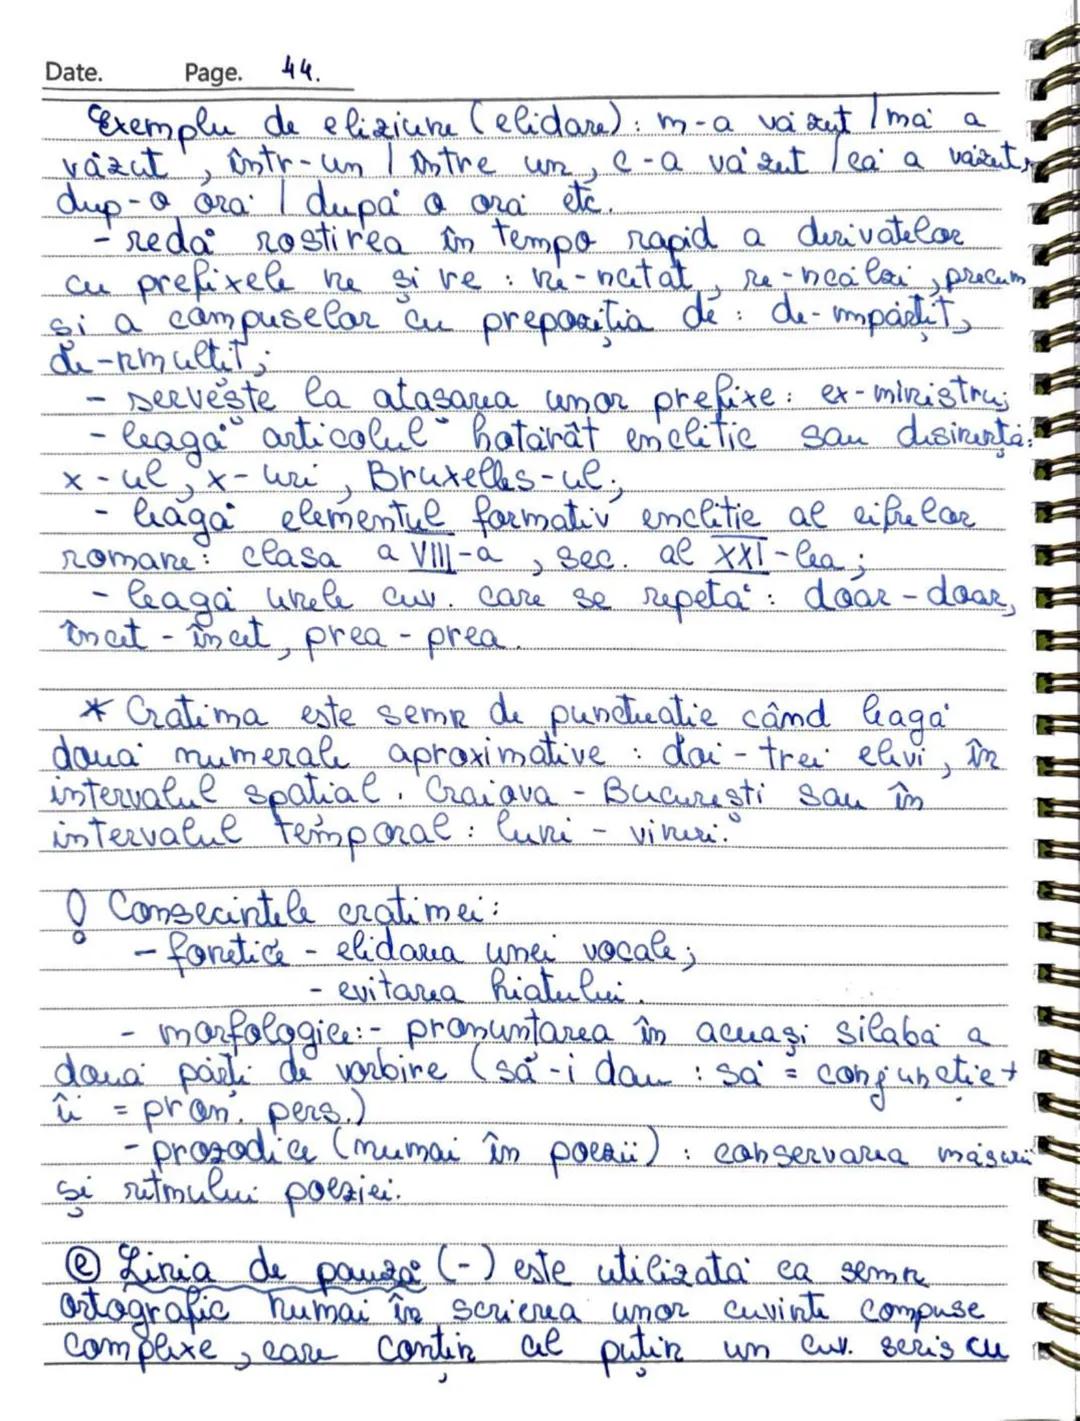 Date. Page. 44.
Exemplu de eliziune (elidare): m-a văzut / mă a
văzut, într-un / între un, c-a văzut / că a văzut,
dup-o oră / după o oră etc.
- redă rostirea în tempo rapid a derivatelor
cu prefixele ne și re: ne-ncetat, re-ncălzi, precum
și a compuselor cu prepoziția de: de-mpărțit,
de-nmulțit;
- servește la atașarea unor prefixe: ex-ministru;
- leagă articolul hotărât enclitic sau desinența:
x-ul, x-uri, Bruxelles-ul;
- leagă elementul formativ enclitic al cifrelor
romane: clasa a VIII-a, sec. al XXI-lea;
- leagă unele cuv. care se repetă: doar-doar,
încet-încet, prea-prea.
* Cratima este semn de punctuație când leagă
două numerale aproximative: doi-trei elevi, în
intervalul spațial. Craiova - București sau în
intervalul temporal: luni - vineri.
! Consecințele cratimei:
- fonetice - elidarea unei vocale;
- evitarea hiatului.
- morfologice: - pronunțarea în aceași silabă a
două părți de vorbire (să-i dau: să = conjuncție +
îi = pron. pers.)
- prozodice (numai în poezii): conservarea măsurii
și ritmului poeziei.
ⓔ Linia de pauză (-) este utilizată ca semn
ortografic numai în scrierea unor cuvinte compuse
complexe, care conțin cel puțin un cuv. scris cu